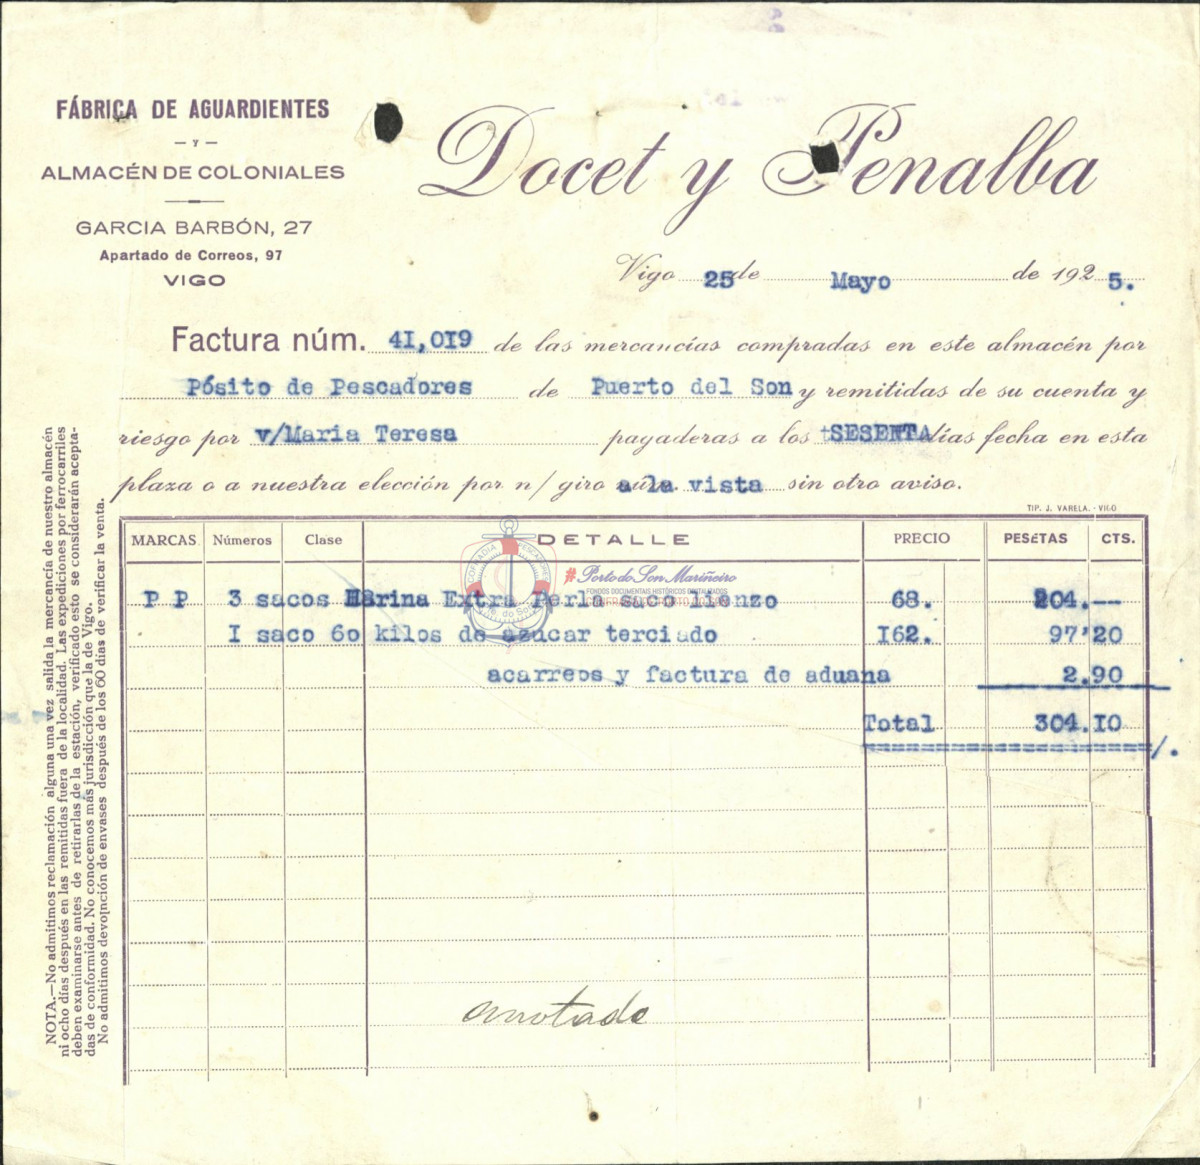 FÁBRICA DE AGUARDIENTES
— Y —
ALMACÉN DE COLONIALES
GARCIA BARBÓN, 27
Apartado de Correos, 97
VIGO
Docet y Penalba
Vigo 25 de Mayo de 1925.
Factura núm. 41,019 de las mercancías compradas en este almacén por
Pósito de Pescadores de Puerto del Son y remitidas de su cuenta y
riesgo por v/Maria Teresa pagaderas a los SESENTA días fecha en esta
plaza o a nuestra elección por n/ giro a la vista sin otro aviso.
TIP. J. VARELA. - VIGO
MARCAS Números Clase DETALLE PRECIO PESETAS CTS.
P P 3 sacos Harina Extra Perla saco lienzo 68. 204.--
I saco 60 kilos de azúcar terciado 162. 97'20
acarreos y factura de aduana 2.90
Total 304.10
anotado
NOTA.—No admitimos reclamación alguna una vez salida la mercancía de nuestro almacén
ni ocho días después en las remitidas fuera de la localidad. Las expediciones por ferrocarriles
deben examinarse antes de retirarlas de la estación, verificado esto se considerarán acepta-
das de conformidad. No conocemos más jurisdicción que la de Vigo.
No admitimos devolnción de envases después de los 60 días de verificar la venta.
#Porto do Son Mariñeiro
FONDOS DOCUMENTAIS HISTÓRICOS DIXITALIZADOS